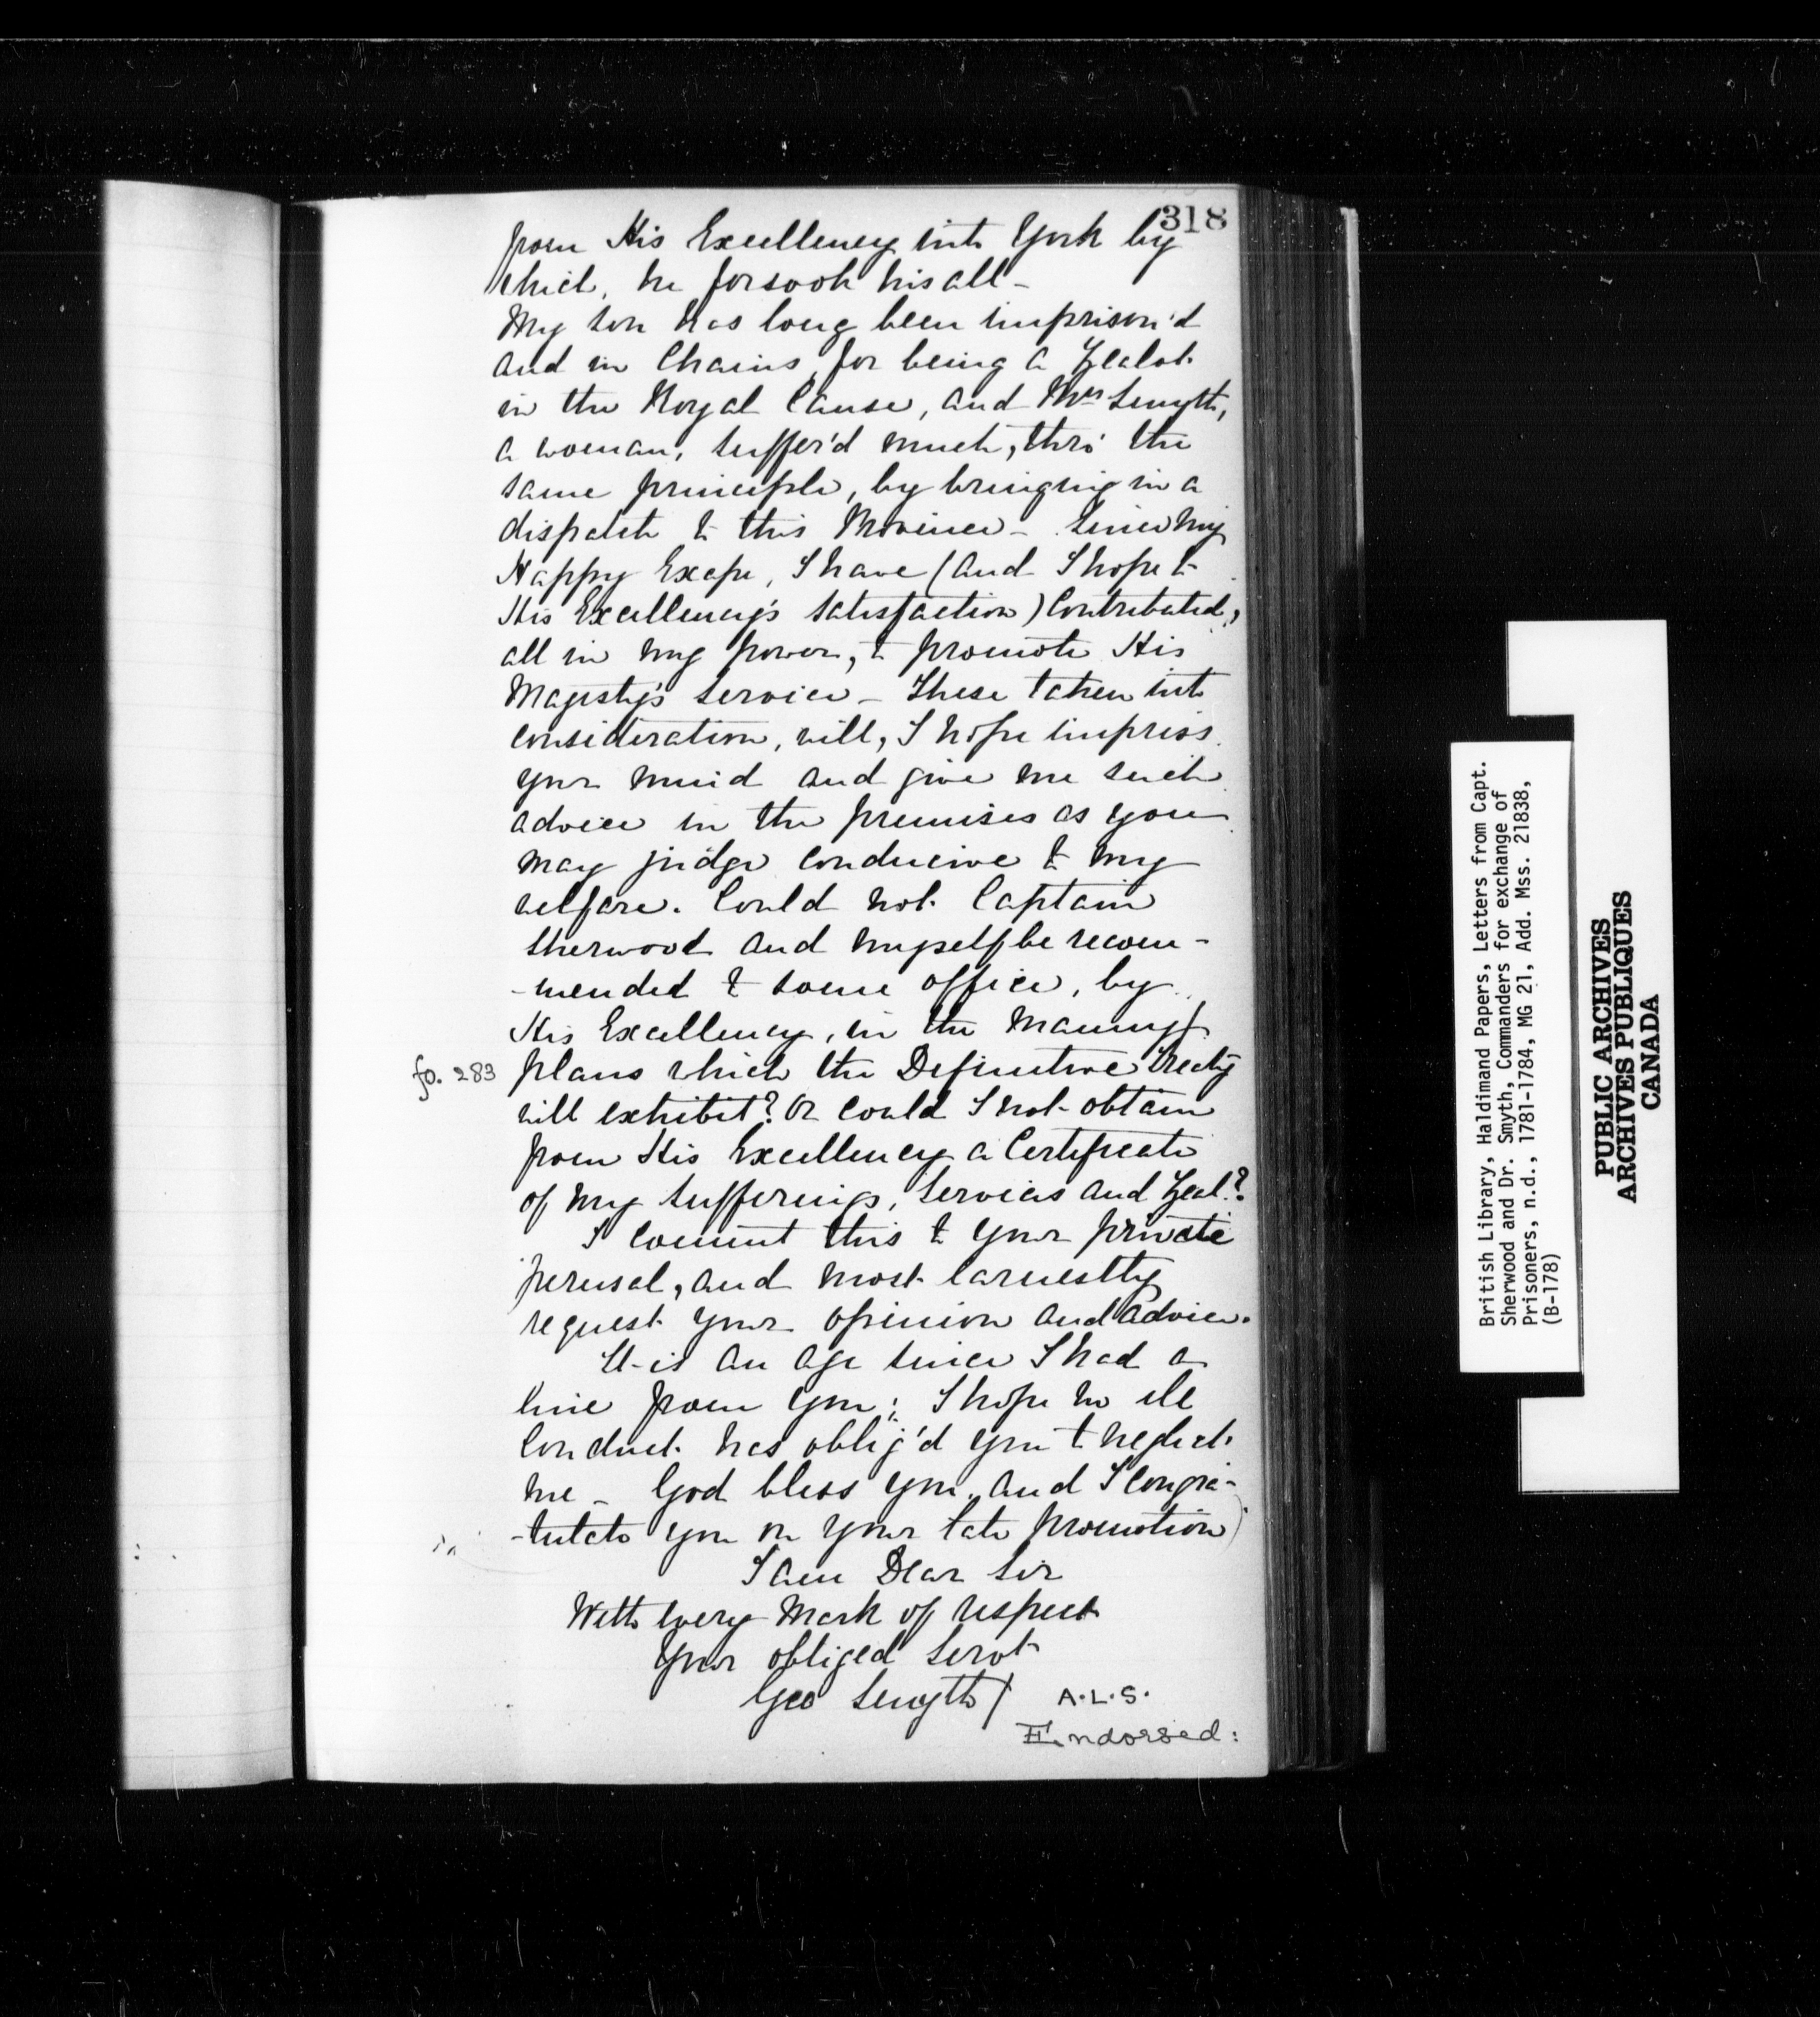 318
from His Excellency into York by
which, he forsook his all -
My son has long been imprison'd
and in Chains, for being a Zealot
in the Royal Cause, and Mrs Smyth,
a woman, suffer'd much, thro' the
same principle, by bringing in a
dispatch to this Province - Since my
Happy Excape, I have (and I hope to
His Excellency's satisfaction) Contributed,
all in my power, to promote His
Majesty's service - These taken into
consideration, will, I hope impress
your mind and give me such
advice in the premises as you
may judge conducive to my
welfare. Could not Captain
Sherwood and myself be recom-
-mended to some office, by
His Excellency, in the Many
fo. 283 plans which the Definitive Treaty
will exhibit? Or could I not obtain
from His Excellency a Certificate
of my sufferings, services and Zeal?
I commit this to your private
perusal, and most earnestly
request your opinion and advice.
It is an age since I had a
line from you; I hope no ill
conduct has oblig'd you to neglect
me - God bless you, and I congra-
-tulate you on your late promotion
I am Dear Sir
With every Mark of respect
Your obliged Servt
Geo Smyth / A.L.S.
Endorsed:
British Library, Haldimand Papers, Letters from Capt.
Sherwood and Dr. Smyth, Commanders for exchange of
Prisoners, n.d., 1781-1784, MG 21, Add. Mss. 21838,
(B-178)
PUBLIC ARCHIVES
ARCHIVES PUBLIQUES
CANADA